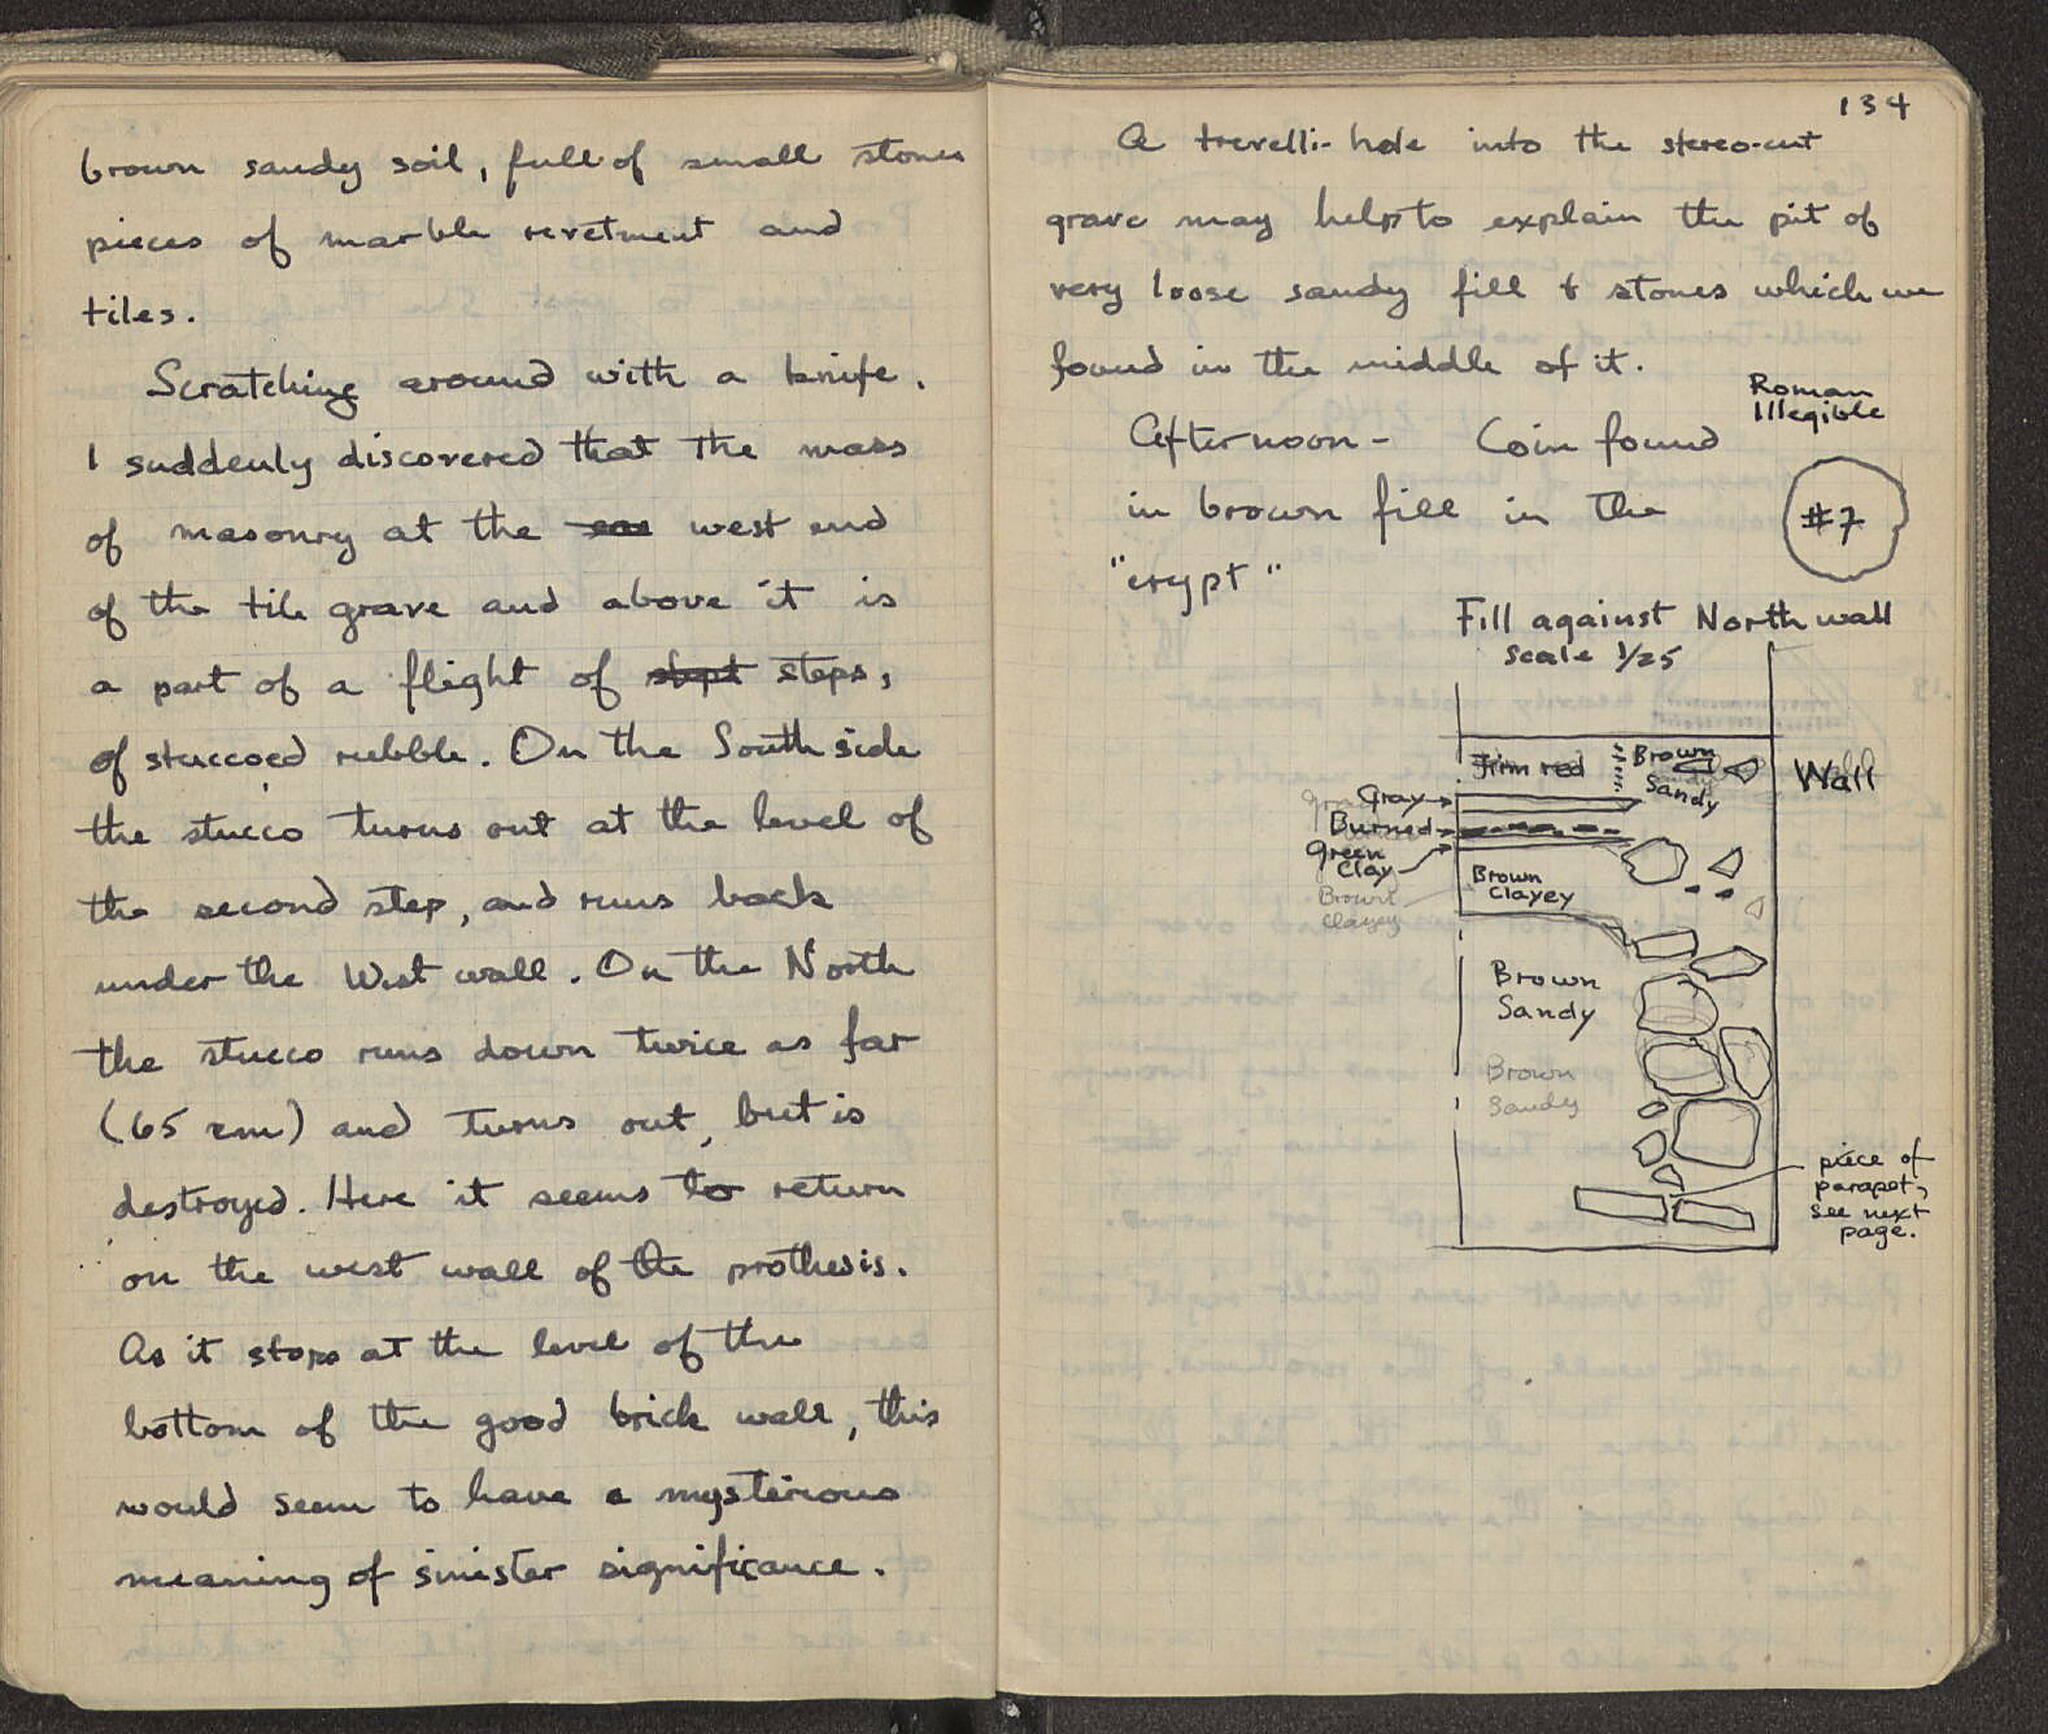 brown sandy soil, full of small stones
pieces of marble revetment and
tiles.
Scratching around with a knife.
I suddenly discovered that the mass
of masonry at the west end
of the tile grave and above it is
a part of a flight of stept steps,
of stuccoed rubble. On the South side
the stucco turns out at the level of
the second step, and runs back
under the West wall. On the North
the stucco runs down twice as far
(65 cm) and turns out, but is
destroyed. Here it seems to return
on the west wall of the prothesis.
As it stops at the level of the
bottom of the good brick wall, this
would seem to have a mysterious
meaning of sinister significance.
134
A trevelli-hole into the stereo-cut
grave may help to explain the pit of
very loose sandy fill & stones which we
found in the middle of it.
Roman
Illegible
Afternoon - Coin found
in brown fill in the
"crypt"
#7
Fill against North wall
Scale 1/25
Firm red
Brown
Sandy
Wall
Gray
Burned
Green
Clay
Brown
Clayey
Brown
Clayey
Brown
Sandy
Brown
Sandy
piece of
parapet,
see next
page.